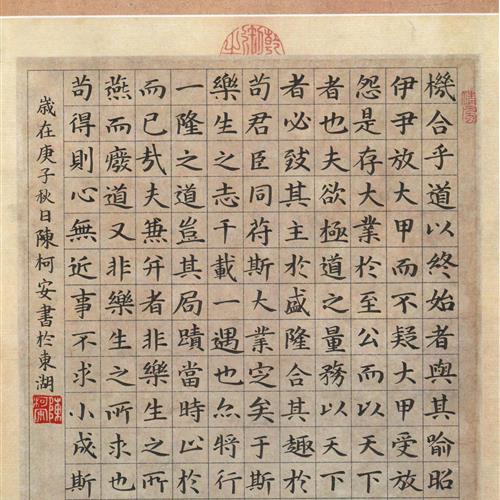 機合乎道以終始者與其喻昭
伊尹放大甲而不疑大甲受放
怨是存大業於至公而以天下
者也夫欲極道之量務以天下
者必致其主於盛隆合其趣於
苟君臣同符斯大業定矣于斯
樂生之志千載一遇也亦將行
一隆之道豈其局蹟當時止於
而已哉夫兼并者非樂生之所
燕而廢道又非樂生之所求也
苟得則心無近事不求小成斯
歲在庚子秋日陳柯安書於東湖
陳柯安